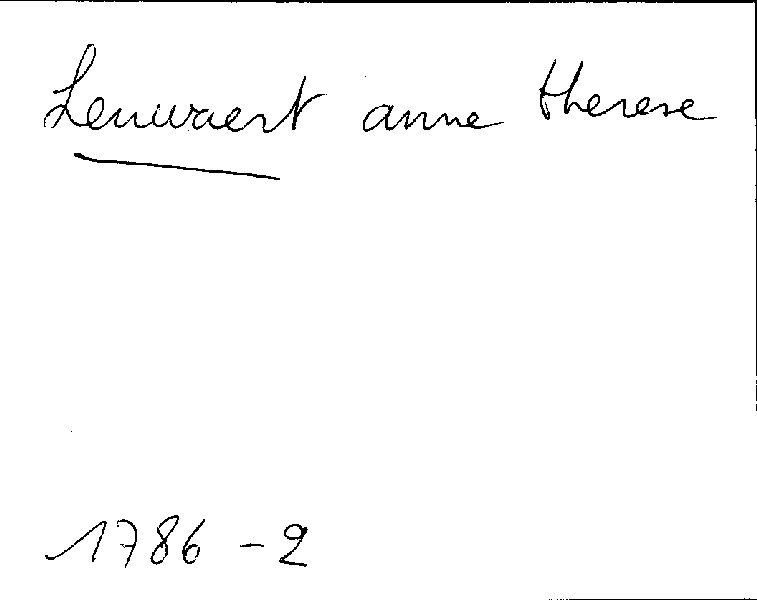 Leuwaert anne therese
1786 - 2